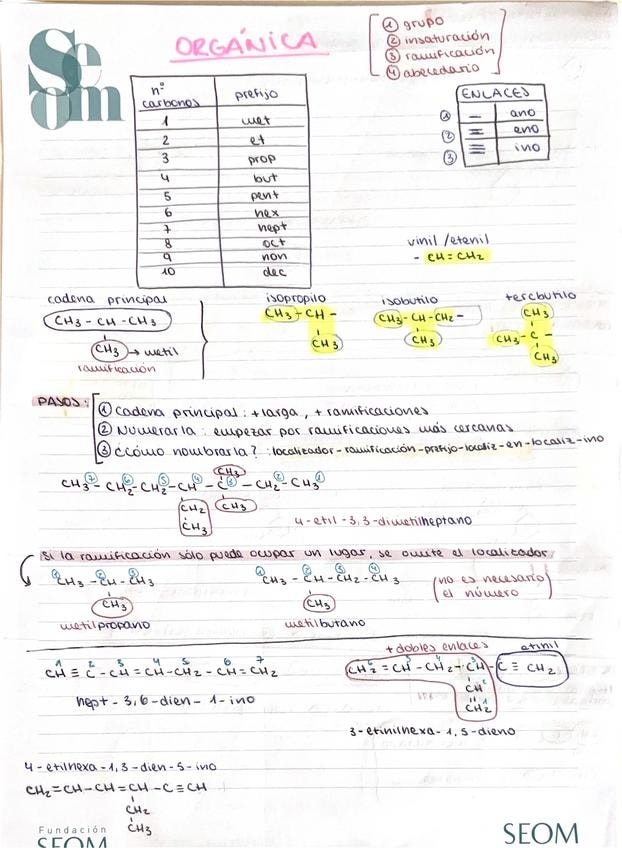 Seom
ORGÁNICA
① grupo
② insaturación
③ ramificación
④ abecedario
nº carbonos prefijo
1 met
2 et
3 prop
4 but
5 pent
6 hex
7 hept
8 oct
9 non
10 dec
ENLACES
① — ano
② = eno
③ ≡ ino
vinil/etenil
- CH=CH₂
cadena principal
CH₃-CH-CH₃
CH₃ → metil
ramificación
isopropilo
CH₃-CH-
CH₃
isobutilo
CH₃-CH-CH₂-
CH₃
tercbutilo
CH₃
CH₃-C-
CH₃
PASOS:
① Cadena principal: + larga, + ramificaciones
② Numerarla: empezar por ramificaciones más cercanas
③ ¿Cómo nombrarla?: localizador-ramificación-prefijo-localiz-en-localiz-ino
CH₃
⑦ ⑥ ⑤ ④ ③ ② ①
CH₃-CH₂-CH₂-CH-C-CH₂-CH₃
CH₂ CH₃
CH₃
4-etil-3,3-dimetilheptano
Si la ramificación sólo puede ocupar un lugar, se omite el localizador
① ② ③
CH₃-CH-CH₃
CH₃
metilpropano
① ② ③ ④
CH₃-CH-CH₂-CH₃
CH₃
metilbutano
(no es necesario
el número)
1 2 3 4 5 6 7
CH≡C-CH=CH-CH₂-CH=CH₂
hept-3,6-dien-1-ino
+ dobles enlaces etinil
6 5 4 3
CH₂=CH-CH₂-CH-C≡CH₂
CH 2
CH₂ 1
3-etinilhexa-1,5-dieno
4-etilhexa-1,3-dien-5-ino
CH₂=CH-CH=CH-C≡CH
CH₂
CH₃
Fundación
SEOM
SEOM